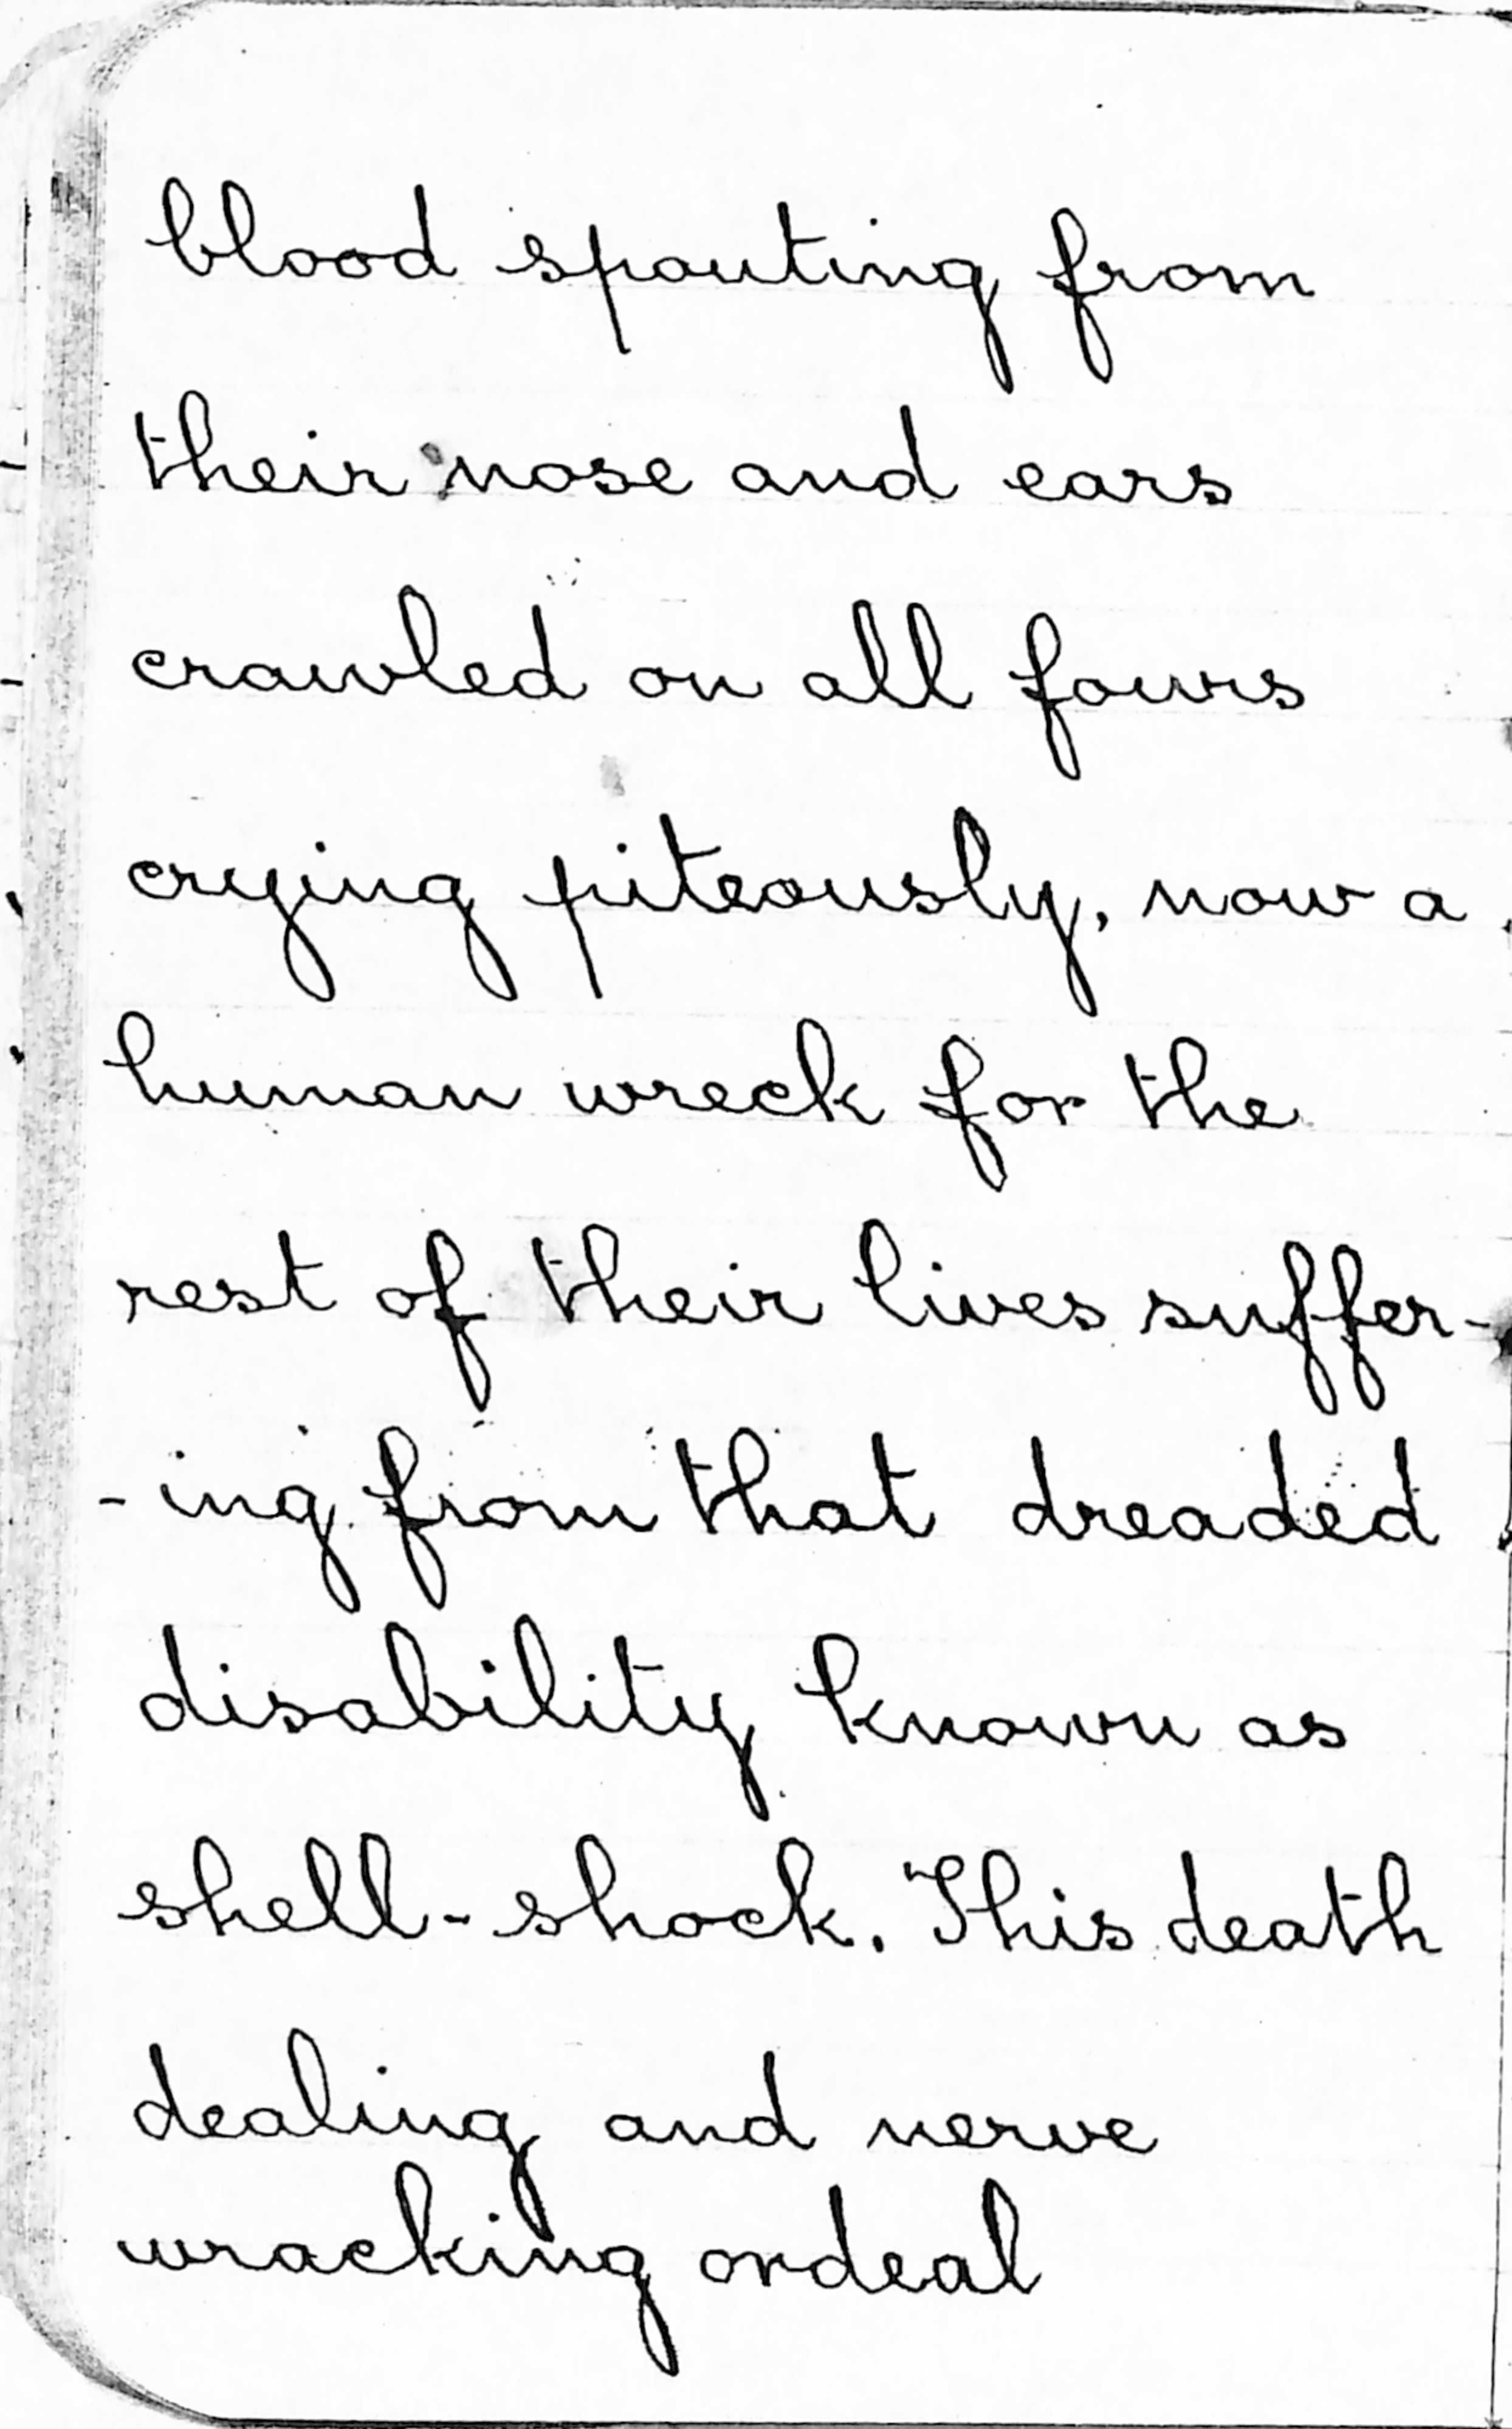 blood spouting from
their nose and ears
crawled on all fours
crying piteously, now a
human wreck for the
rest of their lives suffer-
-ing from that dreaded
disability known as
shell-shock. This death
dealing and nerve
wracking ordeal